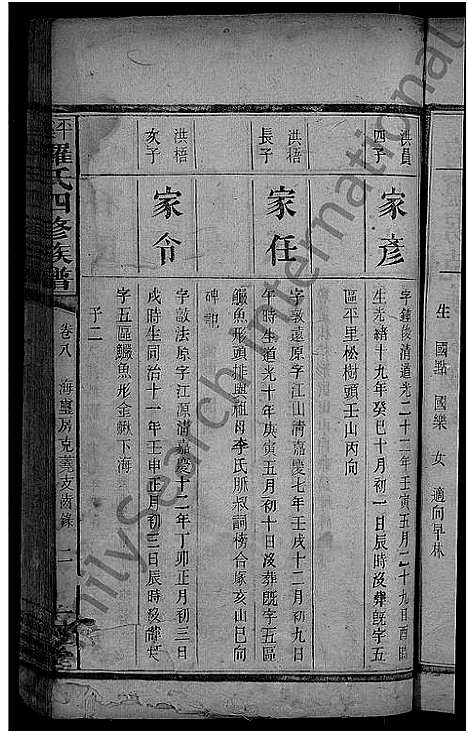 生 國點 國樂 女 適向早林
洪員
四子
家彥
字鍾俊清道光二十二年壬寅五月二十九日酉時
生光緒十九年癸巳十月初一日辰時沒葬既字五
區平里松樹頭壬山丙向
洪梧
長子
家任
字敦遠原字江山清嘉慶七年壬戌十二月初九日
午時生道光十年庚寅五月初十日沒葬既字五區
鱖魚形頭排與祖母李氏脈叔詞榜合塚亥山巳向
碑記
洪梧
次子
家令
字敦法原字江源清嘉慶十二年丁卯正月初三日
戌時生同治十一年壬申正月初三日辰時沒葬
字五區鱖魚形金楸下海
子二
平 羅氏四修族譜
卷八 海璽房克 支齒錄 二
堂
FamilySearch International